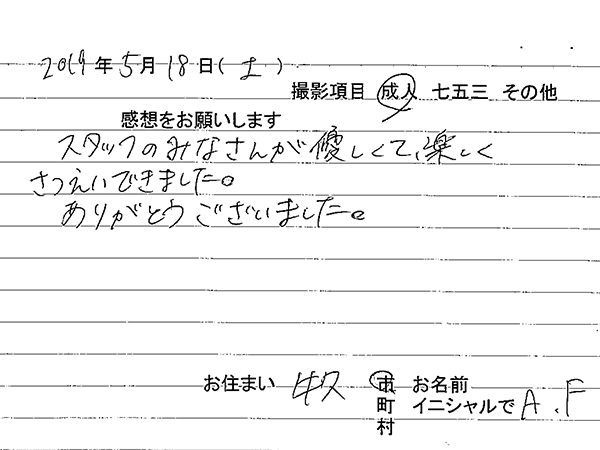 2019年5月18日(土)
撮影項目 成人 七五三 その他
感想をお願いします
スタッフのみなさんが優しくて、楽しく
さつえいできました。
ありがとうございました。
お住まい 牛久 市 お名前
町 イニシャルで A.F
村